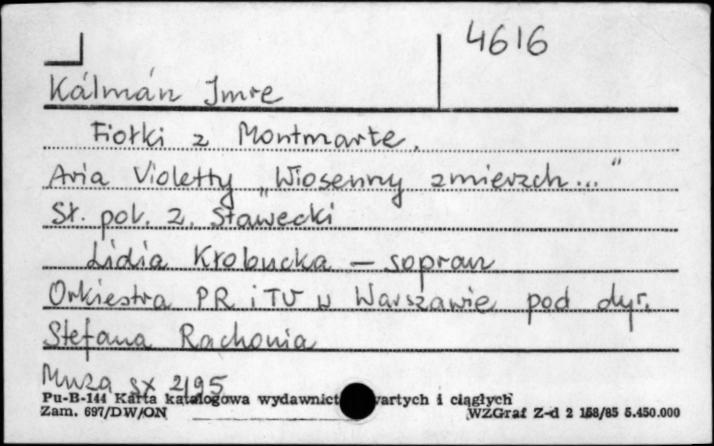 4616
Kálmán Imre
Fiołki z Montmarte.
Aria Violetty „Wiosenny zmierzch..."
Sł. pol. Z. Stawecki
Lidia Krobucka – sopran
Orkiestra PR i TV w Warszawie pod dyr.
Stefana Rachonia
Muza sx 2195
Pu-B-144 Karta katalogowa wydawnict wartych i ciągłych
Zam. 697/DW/ON WZGraf Z-d 2 158/85 5.450.000